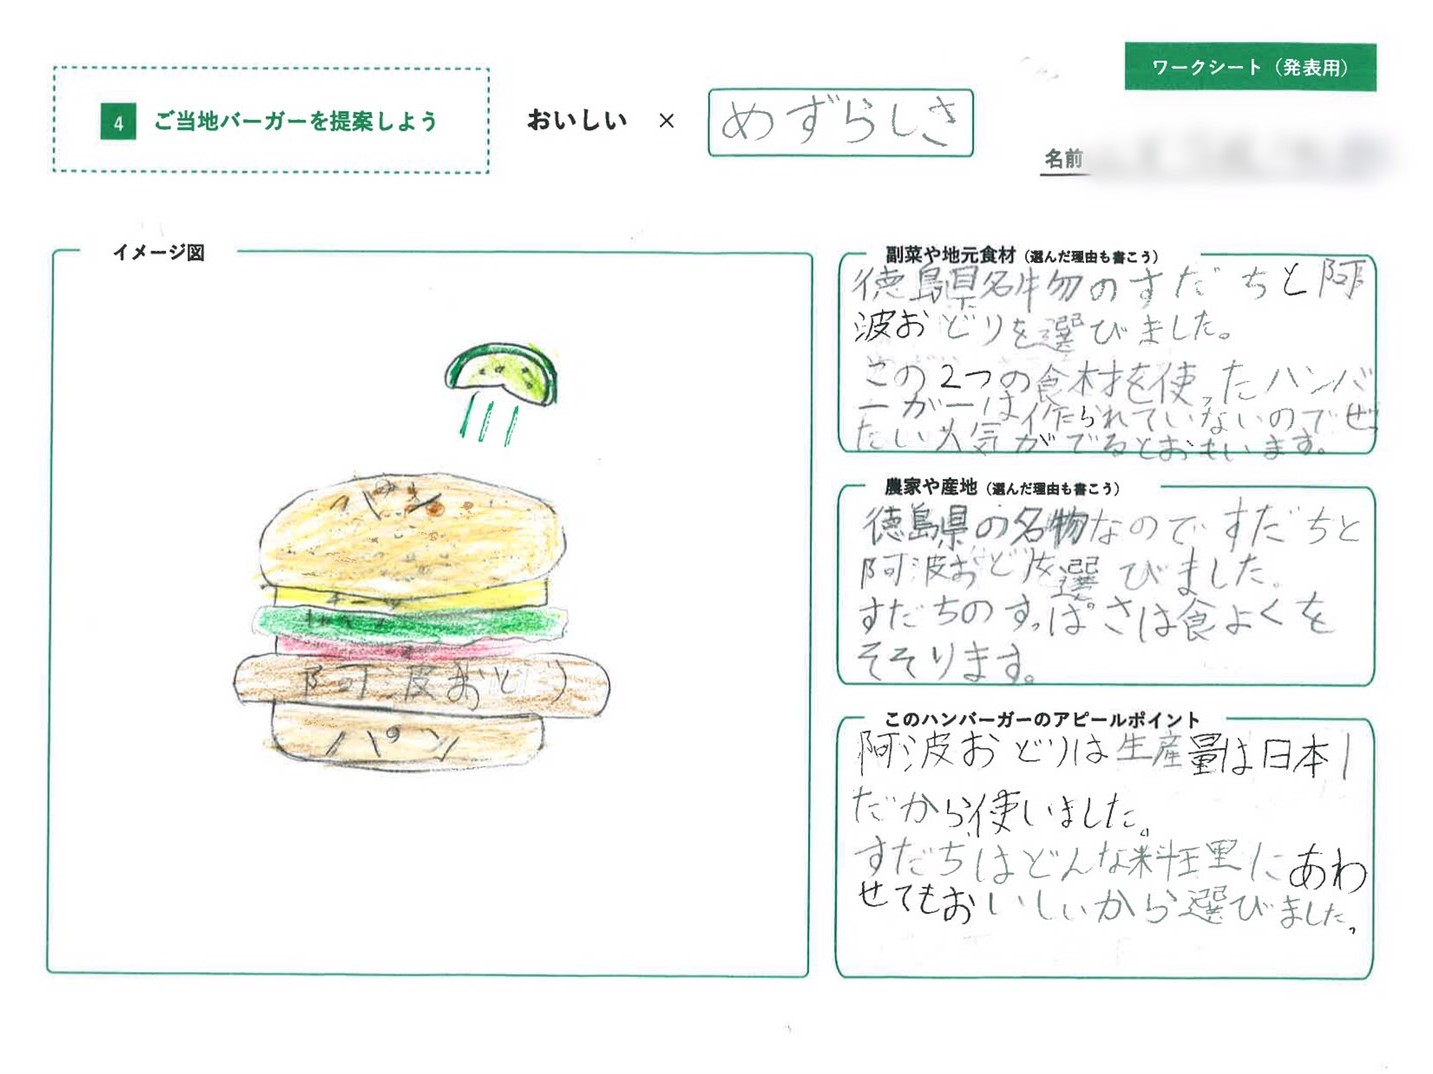 ワークシート（発表用）
4 ご当地バーガーを提案しよう
おいしい × めずらしさ
名前
イメージ図
パン
チーズ
阿波おどり
パン
副菜や地元食材（選んだ理由も書こう）
徳島県名物のすだちと阿
波おどりを選びました。
この2つの食材を使ったハンバ
ーガーは作られていないのでぜっ
たい人気がでるとおもいます。
農家や産地（選んだ理由も書こう）
徳島県の名物なのですだちと
阿波おどりを選びました。
すだちのすっぱさは食よくを
そそります。
このハンバーガーのアピールポイント
阿波おどりは生産量は日本1
だから使いました。
すだちはどんな料理にあわ
せてもおいしいから選びました。